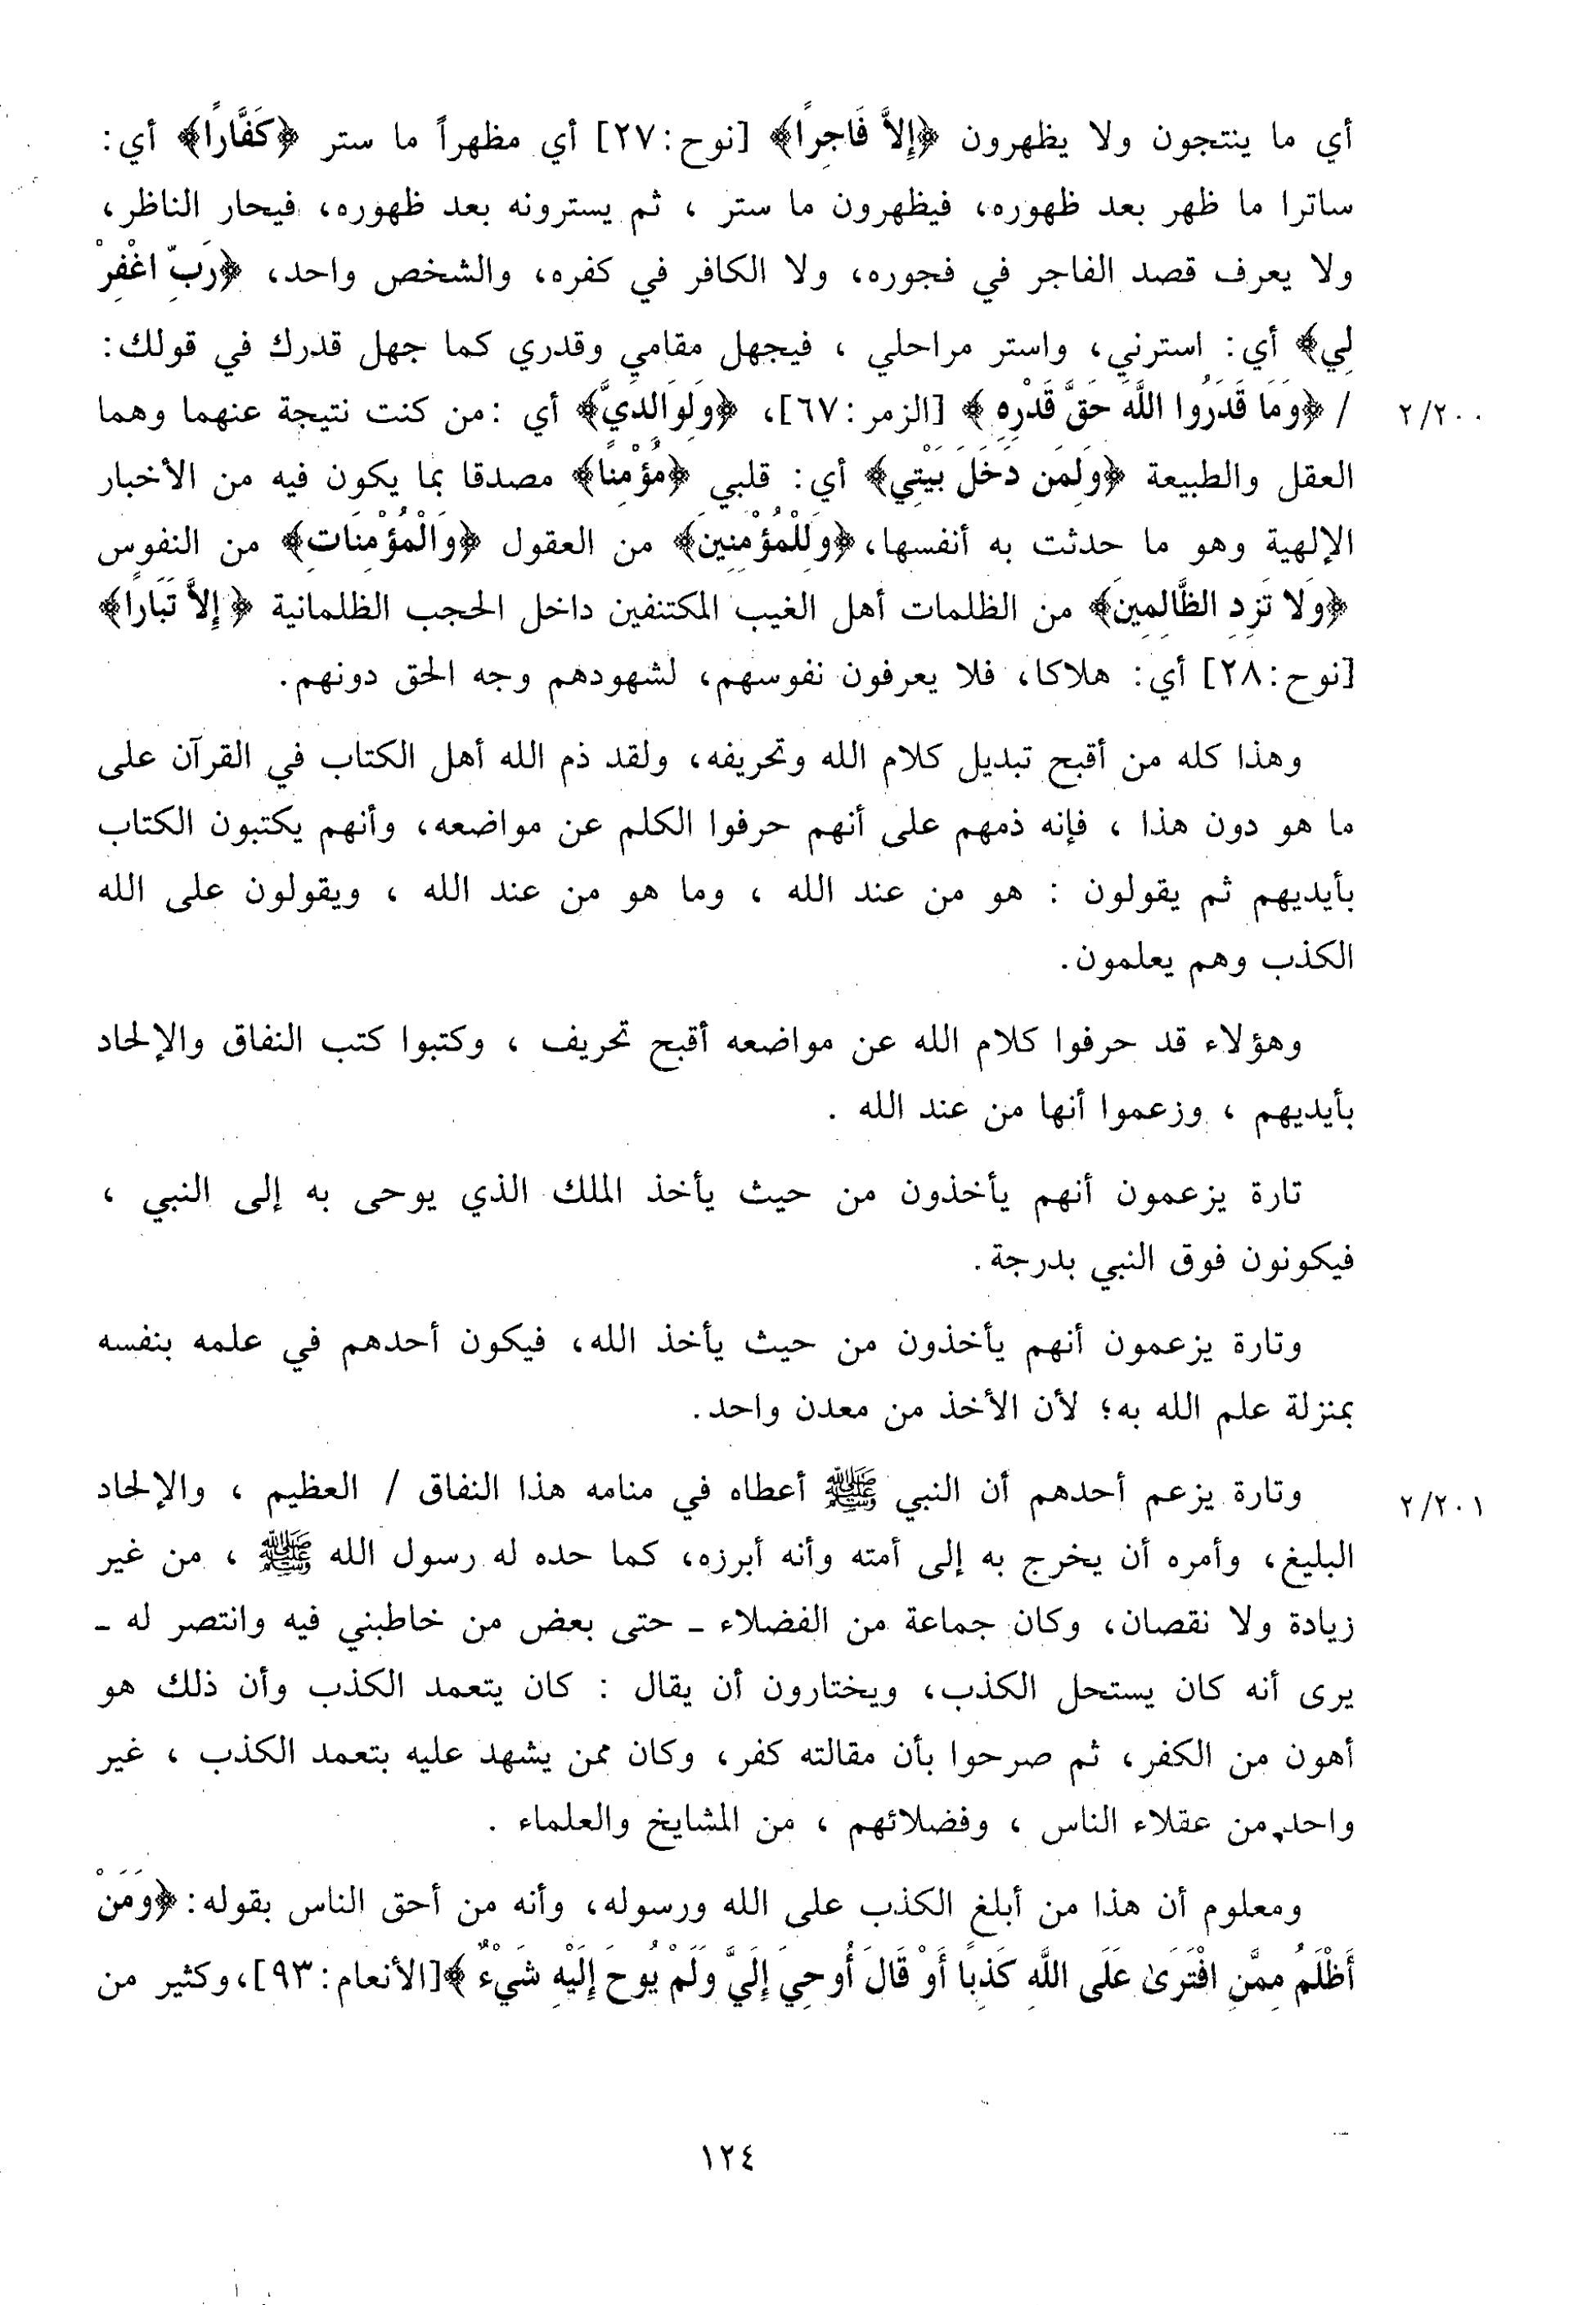 أي ما ينتجون ولا يظهرون ﴿إِلاَّ فَاجِراً﴾ [نوح:٢٧] أي مظهراً ما ستر ﴿كَفَّارًا﴾ أي:
ساترا ما ظهر بعد ظهوره، فيظهرون ما ستر ، ثم يسترونه بعد ظهوره، فيحار الناظر،
ولا يعرف قصد الفاجر في فجوره، ولا الكافر في كفره، والشخص واحد، ﴿رَبِّ اغْفِرْ
لِي﴾ أي: استرني، واستر مراحلي ، فيجهل مقامي وقدري كما جهل قدرك في قولك:
٢/٢٠٠ / ﴿وَمَا قَدَرُوا اللَّهَ حَقَّ قَدْرِهِ ﴾ [الزمر:٦٧]، ﴿وَلِوَالِدَيَّ﴾ أي :من كنت نتيجة عنهما وهما
العقل والطبيعة ﴿وَلِمَن دَخَلَ بَيْتِي﴾ أي: قلبي ﴿مُؤْمِنًا﴾ مصدقا بما يكون فيه من الأخبار
الإلهية وهو ما حدثت به أنفسها، ﴿وَلِلْمُؤْمِنِينَ﴾ من العقول ﴿وَالْمُؤْمِنَاتِ﴾ من النفوس
﴿وَلا تَزِدِ الظَّالِمِينَ﴾ من الظلمات أهل الغيب المكتنفين داخل الحجب الظلمانية ﴿ إِلاَّ تَبَارًا﴾
[نوح:٢٨] أي: هلاكا، فلا يعرفون نفوسهم، لشهودهم وجه الحق دونهم.
وهذا كله من أقبح تبديل كلام الله وتحريفه، ولقد ذم الله أهل الكتاب في القرآن على
ما هو دون هذا ، فإنه ذمهم على أنهم حرفوا الكلم عن مواضعه، وأنهم يكتبون الكتاب
بأيديهم ثم يقولون : هو من عند الله ، وما هو من عند الله ، ويقولون على الله
الكذب وهم يعلمون.
وهؤلاء قد حرفوا كلام الله عن مواضعه أقبح تحريف ، وكتبوا كتب النفاق والإلحاد
بأيديهم ، وزعموا أنها من عند الله .
تارة يزعمون أنهم يأخذون من حيث يأخذ الملك الذي يوحى به إلى النبي ،
فيكونون فوق النبي بدرجة.
وتارة يزعمون أنهم يأخذون من حيث يأخذ الله، فيكون أحدهم في علمه بنفسه
بمنزلة علم الله به؛ لأن الأخذ من معدن واحد.
٢/٢٠١ وتارة يزعم أحدهم أن النبي ﷺ أعطاه في منامه هذا النفاق / العظيم ، والإلحاد
البليغ، وأمره أن يخرج به إلى أمته وأنه أبرزه، كما حده له رسول الله ﷺ ، من غير
زيادة ولا نقصان، وكان جماعة من الفضلاء ـ حتى بعض من خاطبني فيه وانتصر له ـ
يرى أنه كان يستحل الكذب، ويختارون أن يقال : كان يتعمد الكذب وأن ذلك هو
أهون من الكفر، ثم صرحوا بأن مقالته كفر، وكان ممن يشهد عليه بتعمد الكذب ، غير
واحد من عقلاء الناس ، وفضلائهم ، من المشايخ والعلماء .
ومعلوم أن هذا من أبلغ الكذب على الله ورسوله، وأنه من أحق الناس بقوله: ﴿وَمَنْ
أَظْلَمُ مِمَّنِ افْتَرَىٰ عَلَى اللَّهِ كَذِبًا أَوْ قَالَ أُوحِيَ إِلَيَّ وَلَمْ يُوحَ إِلَيْهِ شَيْءٌ ﴾[الأنعام:٩٣]، وكثير من
١٢٤